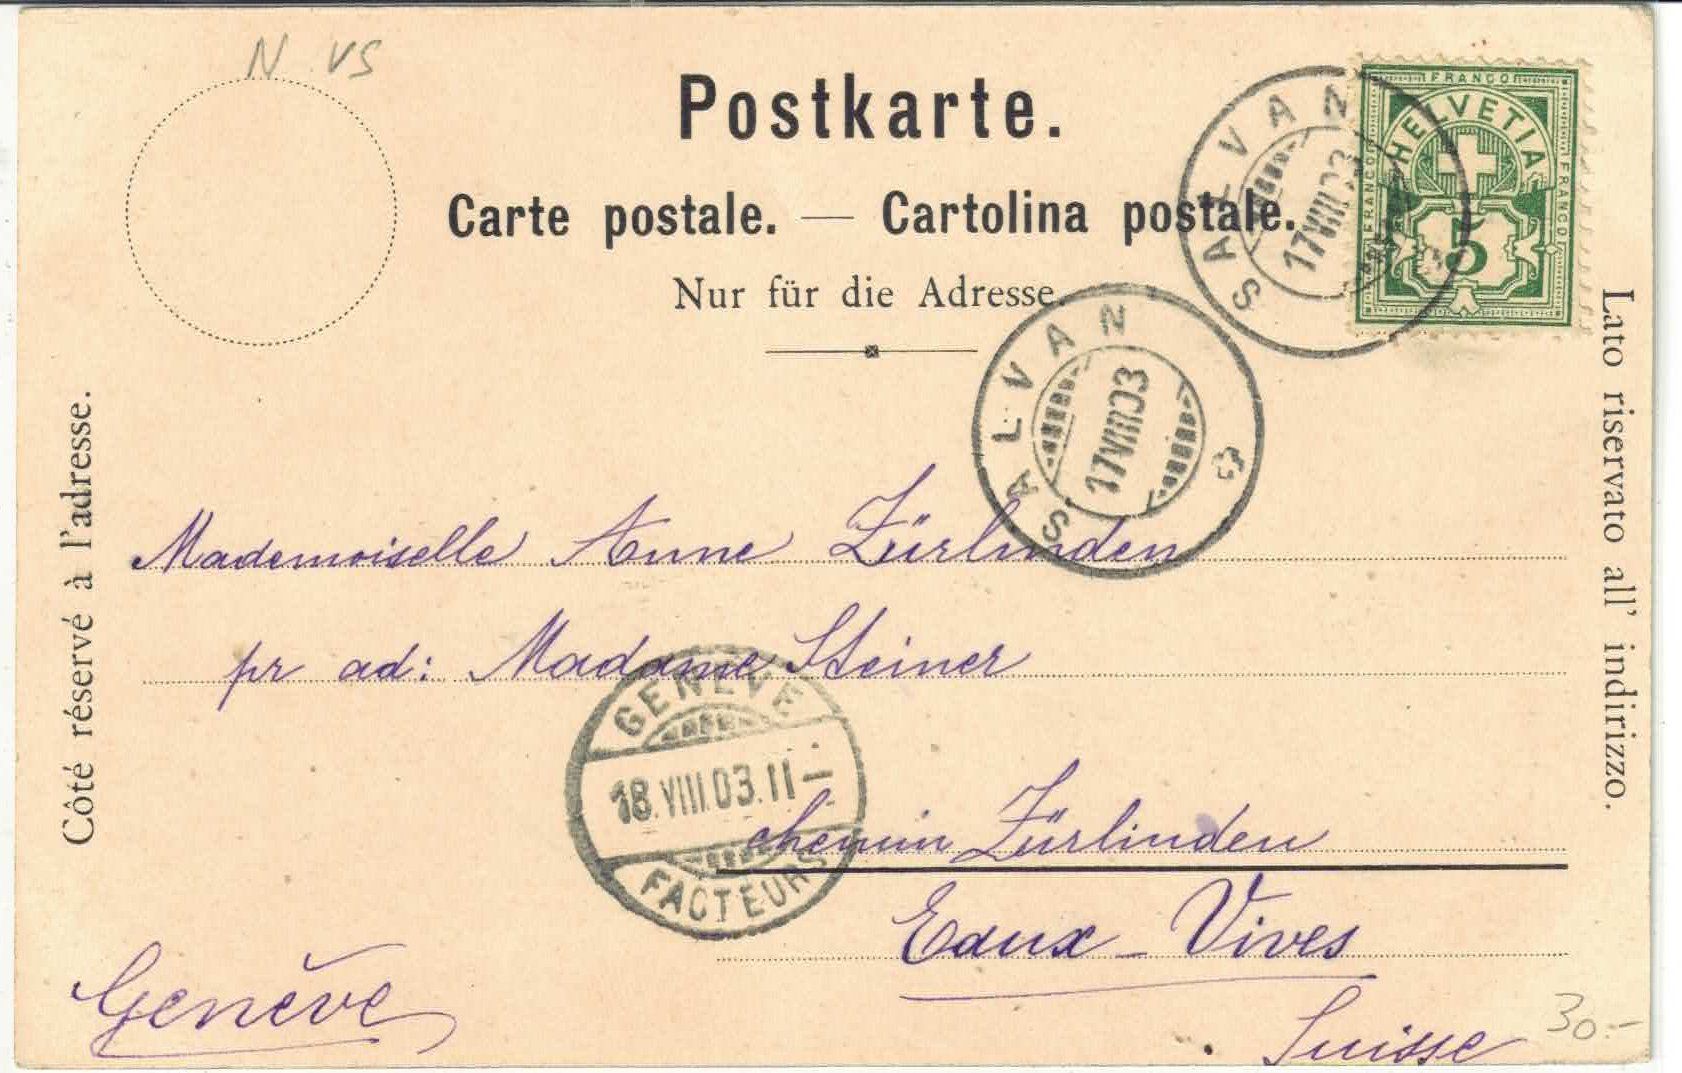 N VS
Postkarte.
Carte postale. — Cartolina postale.
Nur für die Adresse.
FRANCO
FRANCO
FRANCO
HELVETIA
5
SALVAN
17 VIII 03
SALVAN
17 VIII 03
Côté réservé à l'adresse.
Lato riservato all' indirizzo.
Mademoiselle Anne Zürlinden
pr ad: Madame Steiner
GENÈVE
18.VIII.03.11–
FACTEURS
chemin Zürlinden
Eaux-Vives
Genève
Suisse
30.-